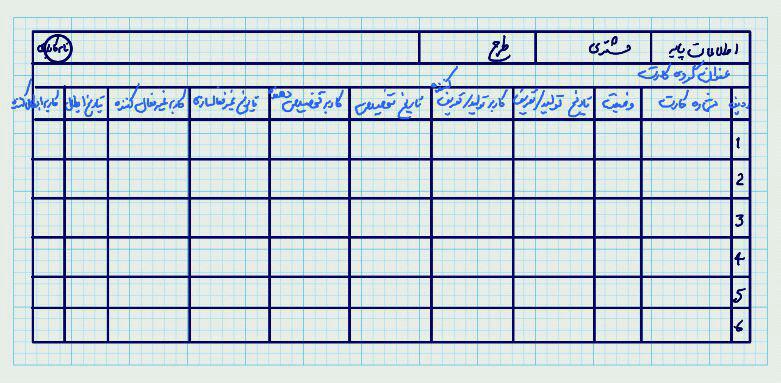 اطلاعات پایه مشتری طرح
عنوان گروه کارت
ردیف شماره کارت وضعیت تاریخ تولید/تعریف کاربر تولید/تعریف کننده تاریخ تخصیص کاربر تخصیص دهنده تاریخ غیرفعالسازی کاربر غیرفعال کننده تاریخ ابطال کاربر ابطال کننده
1
2
3
4
5
6